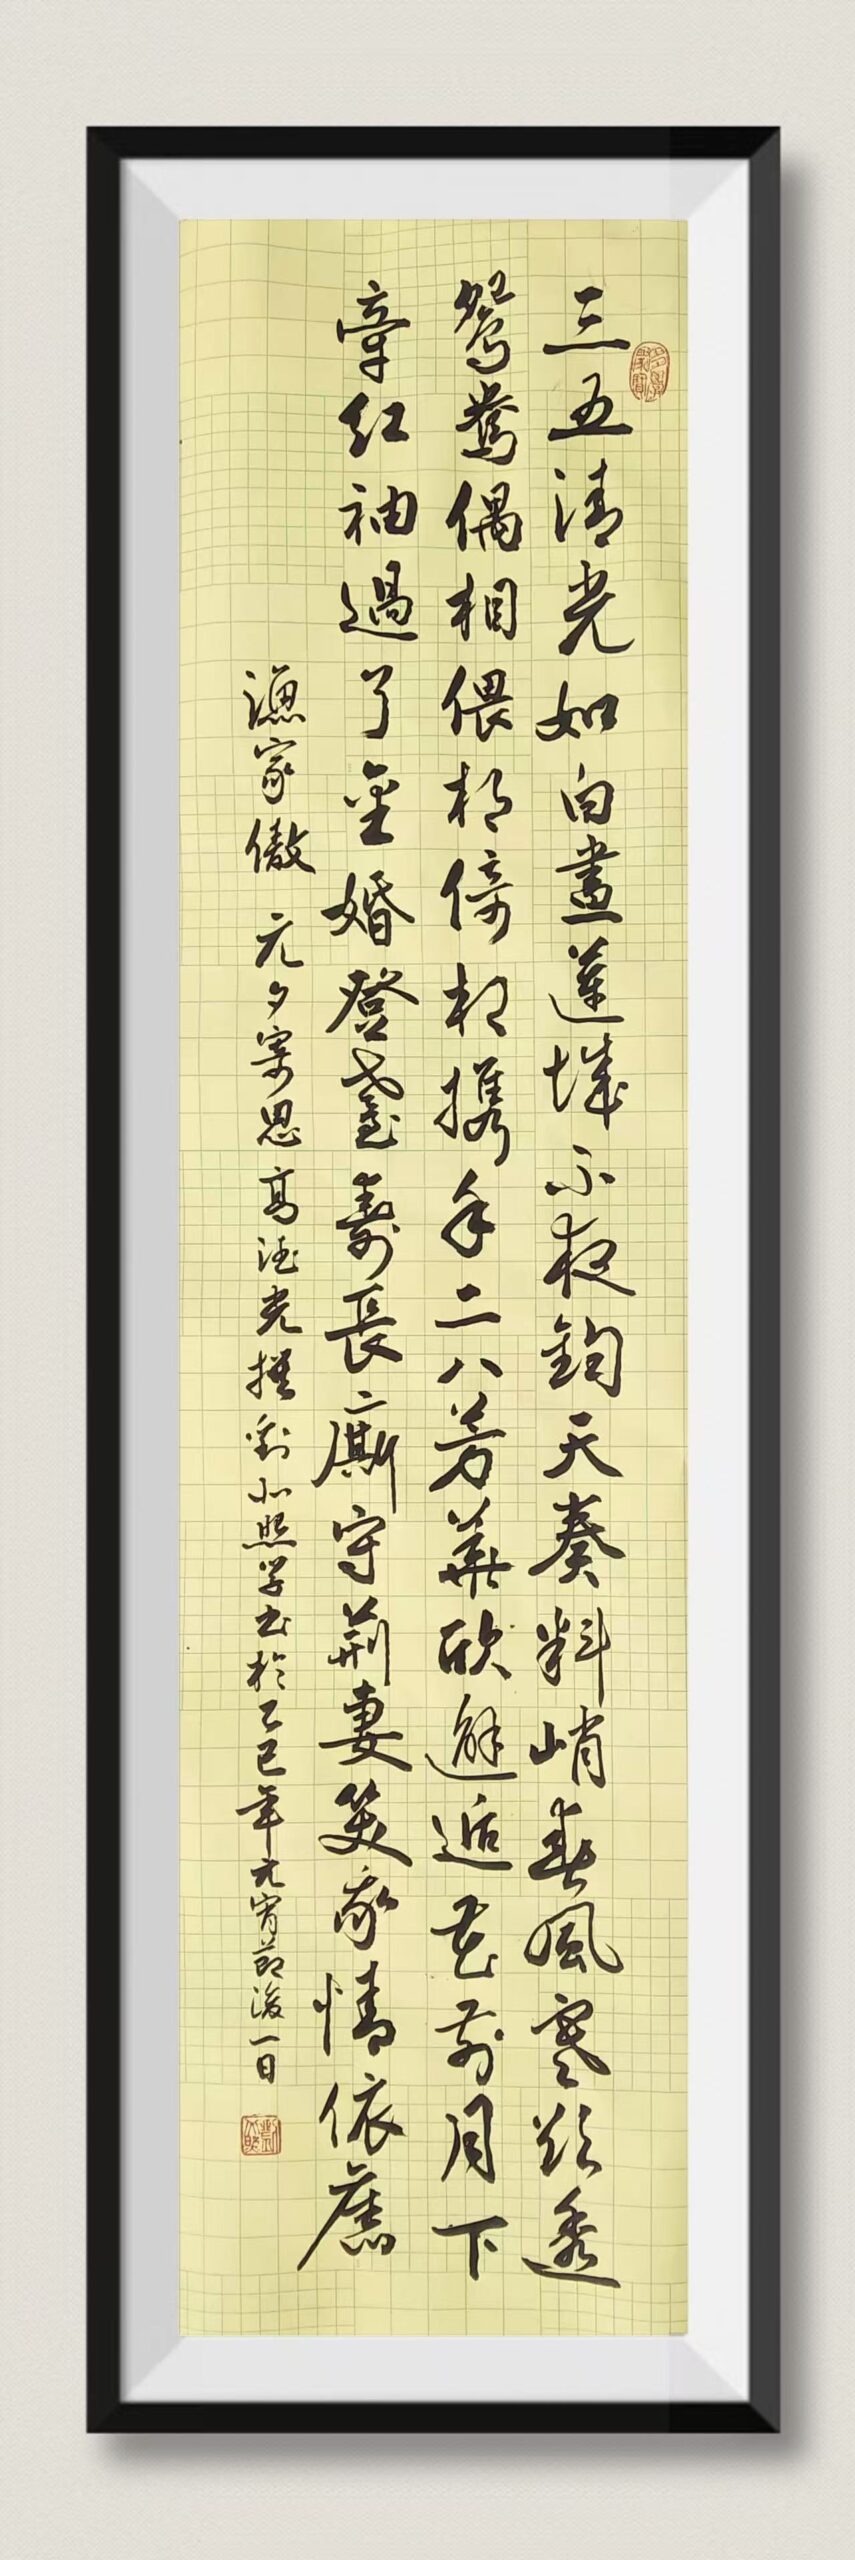 三五清光如白晝蓮城不夜鈞天奏料峭春風寒欲透
鴛鴦偶相偎相倚相攜手二八芳華欣邂逅花前月下
牽紅袖過了金婚登耋壽長廝守荊妻笑我情依舊
漁家傲 元夕寄思 高德光撰 劉照学书於乙巳年元宵節後一日